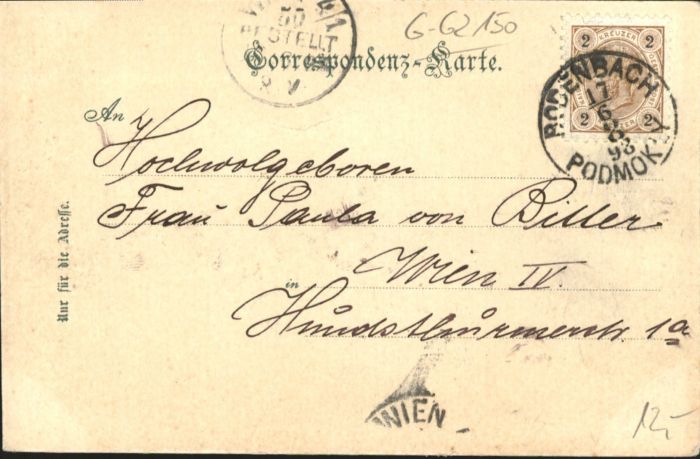 G-62150
Correspondenz-Karte.
BESTELLT
2 KREUZER 2
2 2
BODENBACH
17
6
98
PODMOKLY
An
Hochwolgeboren
Frau Paula von Biller
Wien IV.
in
Hundsthurmerstr. 1a
Nur für die Adresse.
WIEN
12,-